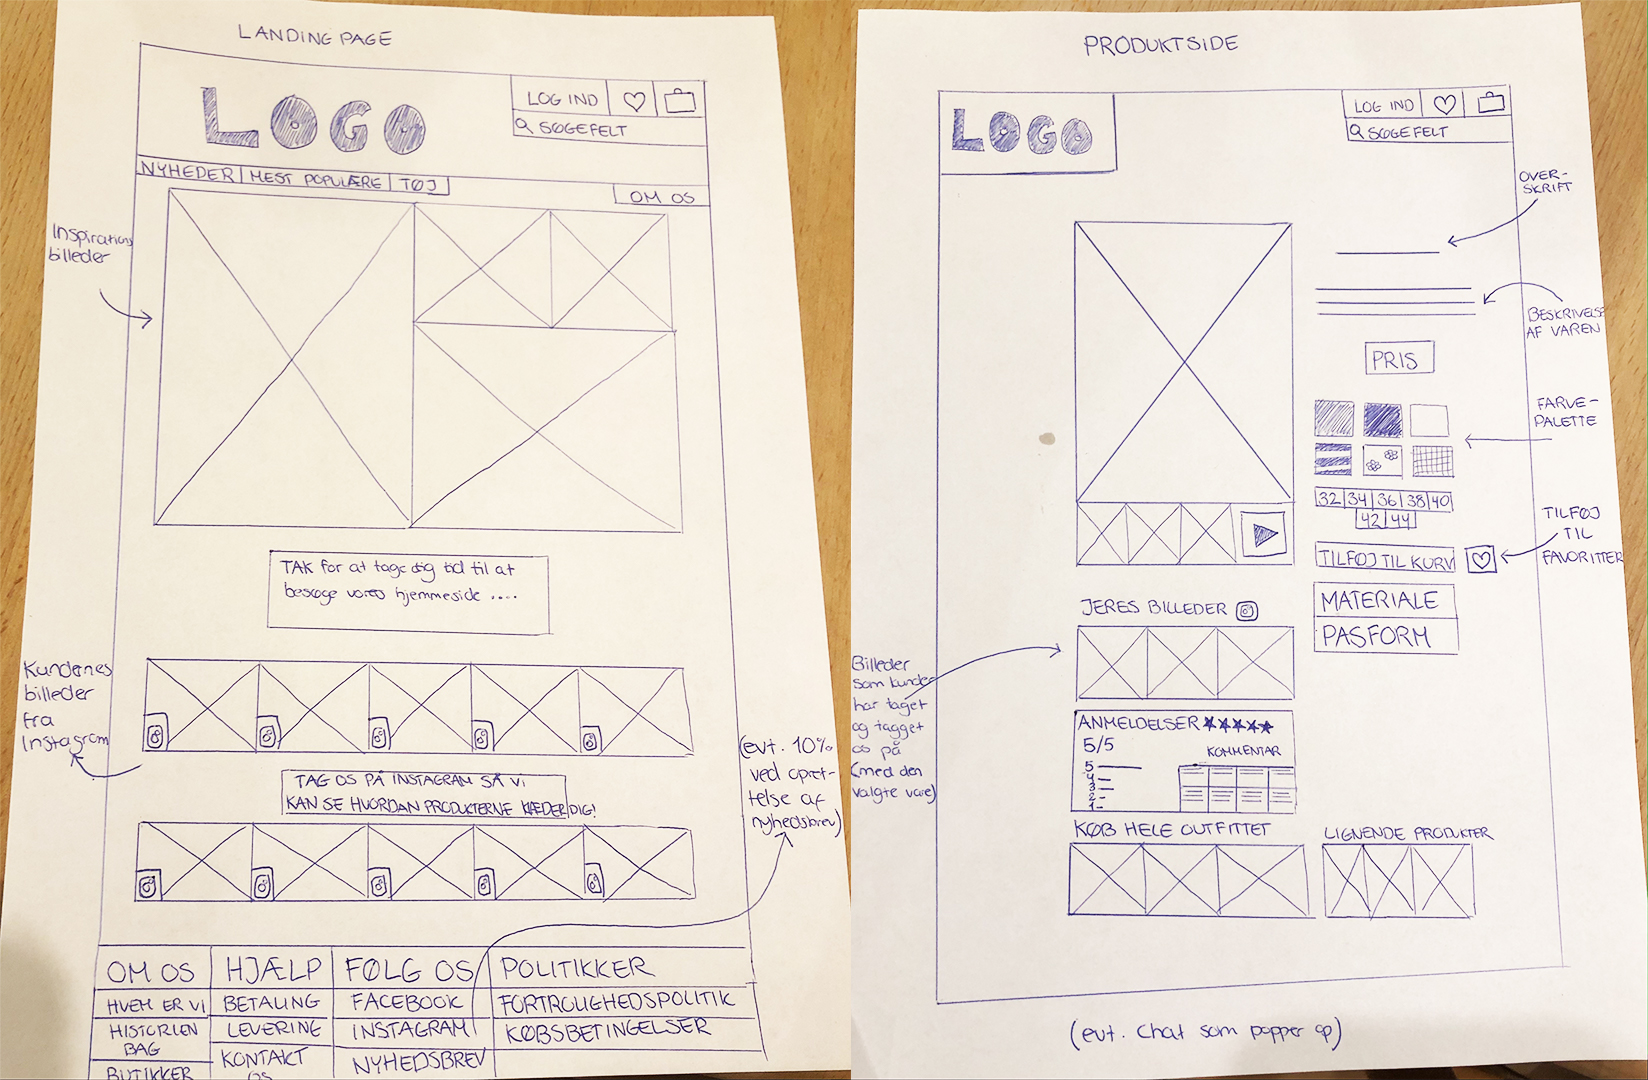 LANDING PAGE
LOGO
LOG IND
SØGEFELT
NYHEDER
MEST POPULÆRE
TØJ
OM OS
Inspirations
billeder
TAK for at tage dig tid til at
besøge vores hjemmeside ....
Kundenes
billeder
fra
Instagram
TAG OS PÅ INSTAGRAM SÅ VI
KAN SE HVORDAN PRODUKTERNE KLÆDER DIG!
(evt. 10%
ved opret-
telse af
nyhedsbrev)
OM OS
HVEM ER VI
HISTORIEN
BAG
BUTIKKER
HJÆLP
BETALING
LEVERING
KONTAKT
OS
FØLG OS
FACEBOOK
INSTAGRAM
NYHEDSBREV
POLITIKKER
FORTROLIGHEDSPOLITIK
KØBSBETINGELSER
PRODUKTSIDE
LOGO
LOG IND
SØGEFELT
OVER-
SKRIFT
BESKRIVELSE
AF VAREN
PRIS
FARVE-
PALETTE
32 34 36 38 40
42 44
TILFØJ TIL KURV
TILFØJ
TIL
FAVORITTER
MATERIALE
PASFORM
JERES BILLEDER
Billeder
som kunder
har taget
og tagget
os på
(med den
valgte vare)
ANMELDELSER
5/5
KOMMENTAR
5
4
3
2
1
KØB HELE OUTFITTET
LIGNENDE PRODUKTER
(evt. Chat som popper op)